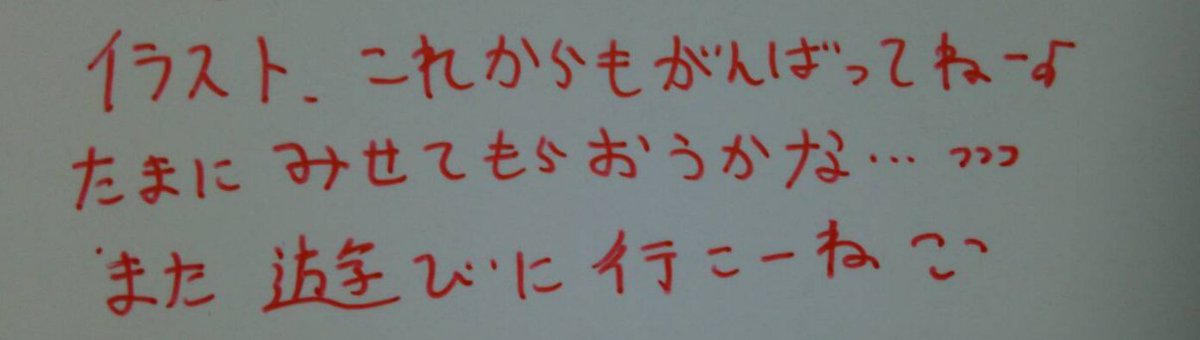 イラスト、これからもがんばってねー♪
たまにみせてもらおうかな…
また遊びに行こーね